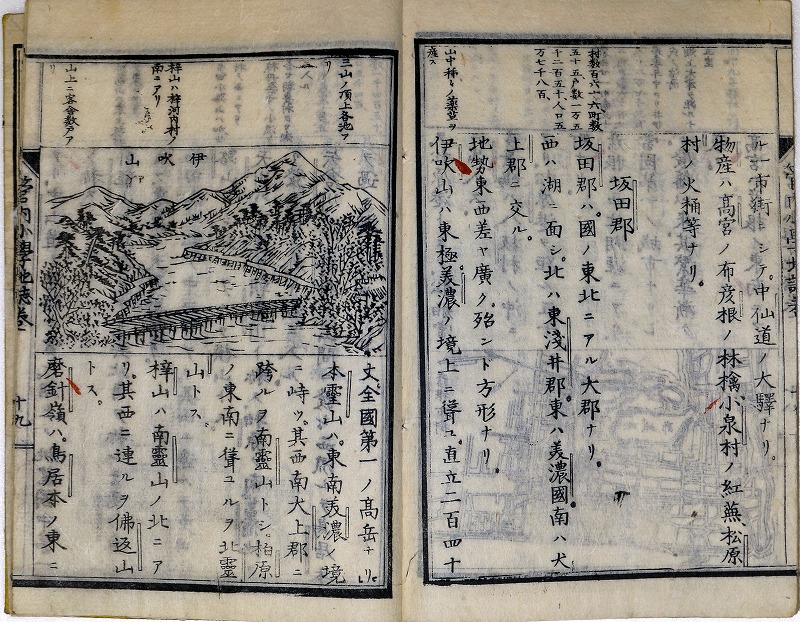 ル一市街ニシテ。中仙道ノ大驛ナリ。
物産ハ高宮ノ布彦根ノ林檎小泉村ノ紅蕪松原
村ノ火桶等ナリ。
坂田郡
坂田郡ハ。國ノ東北ニアル大郡ナリ。
西ハ湖ニ面シ。北ハ東淺井郡。東ハ美濃國南ハ犬
上郡ニ交ル。
地勢東西差ヤ廣ク。殆ント方形ナリ。
伊吹山ハ東極美濃ノ境上ニ聳ユ。直立二百四十
村數百六十六町數
五十五戸數一万五
千二百五十。人口五
万七千八百。
山中種々ノ藥艸ヲ
産ス
三山ノ頂上各池ア
リ
梓山ハ梓河内村ノ
南ニアリ
山上ニ客舎數戸ア
伊
吹
山
丈全國第一ノ高岳ナリ。
本靈山ハ。東南美濃ノ境
ニ峙ツ。其西南犬上郡ニ
跨ルヲ南靈山トシ。柏原
ノ東南ニ聳ユルヲ北靈
山トス。
梓山ハ南靈山ノ北ニア
リ。其西ニ連ルヲ佛返山
トス。
磨針嶺ハ。鳥居本ノ東ニ
管内小學地誌卷二
十九